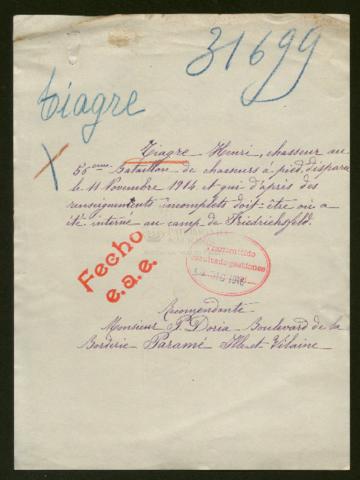 31699
Tiagre
Tiagre Henri, chasseur au
50ème Bataillon de chasseurs à pied, disparu
le 11 Novembre 1914 et qui d'après des
renseignements incomplets doit être où a
été interné au camp de Friedrichsfeld.
Fecho
e.a.e.
Transmitido
resultado gestiones
1916
Recomendante
Monsieur P. Doria - Boulevard de la
Borderie Paramé Ille et Vilaine